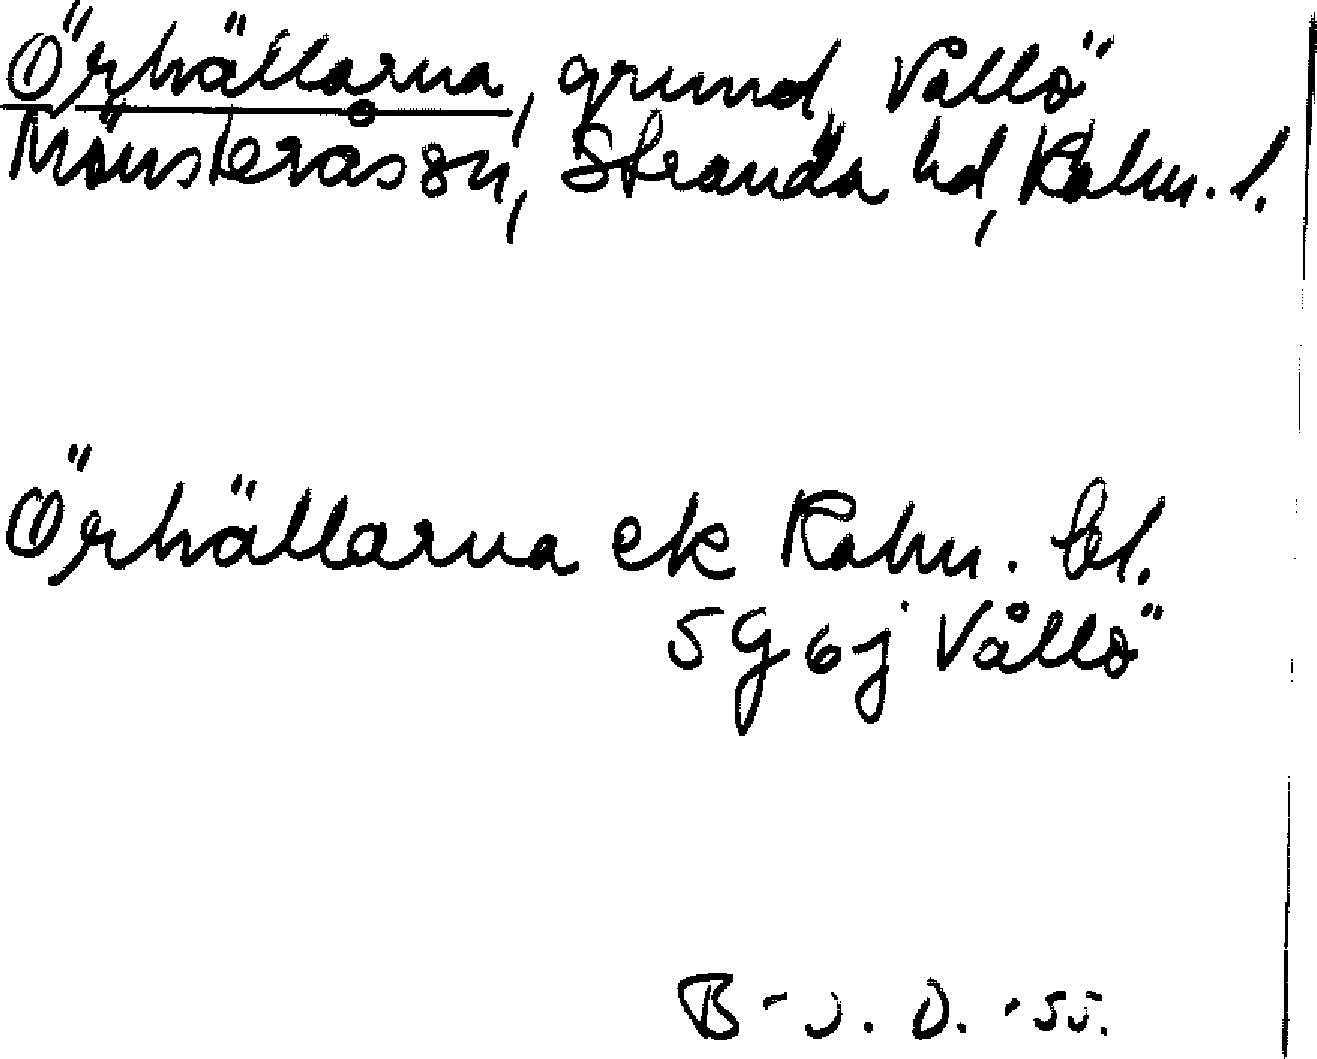 Örhällarna, grund, Vållö
Mönsterås sn, Stranda hd, Kalm. l.
Örhällarna ek Kalm. bl.
5G6j Vållö
B-J. D. -55.